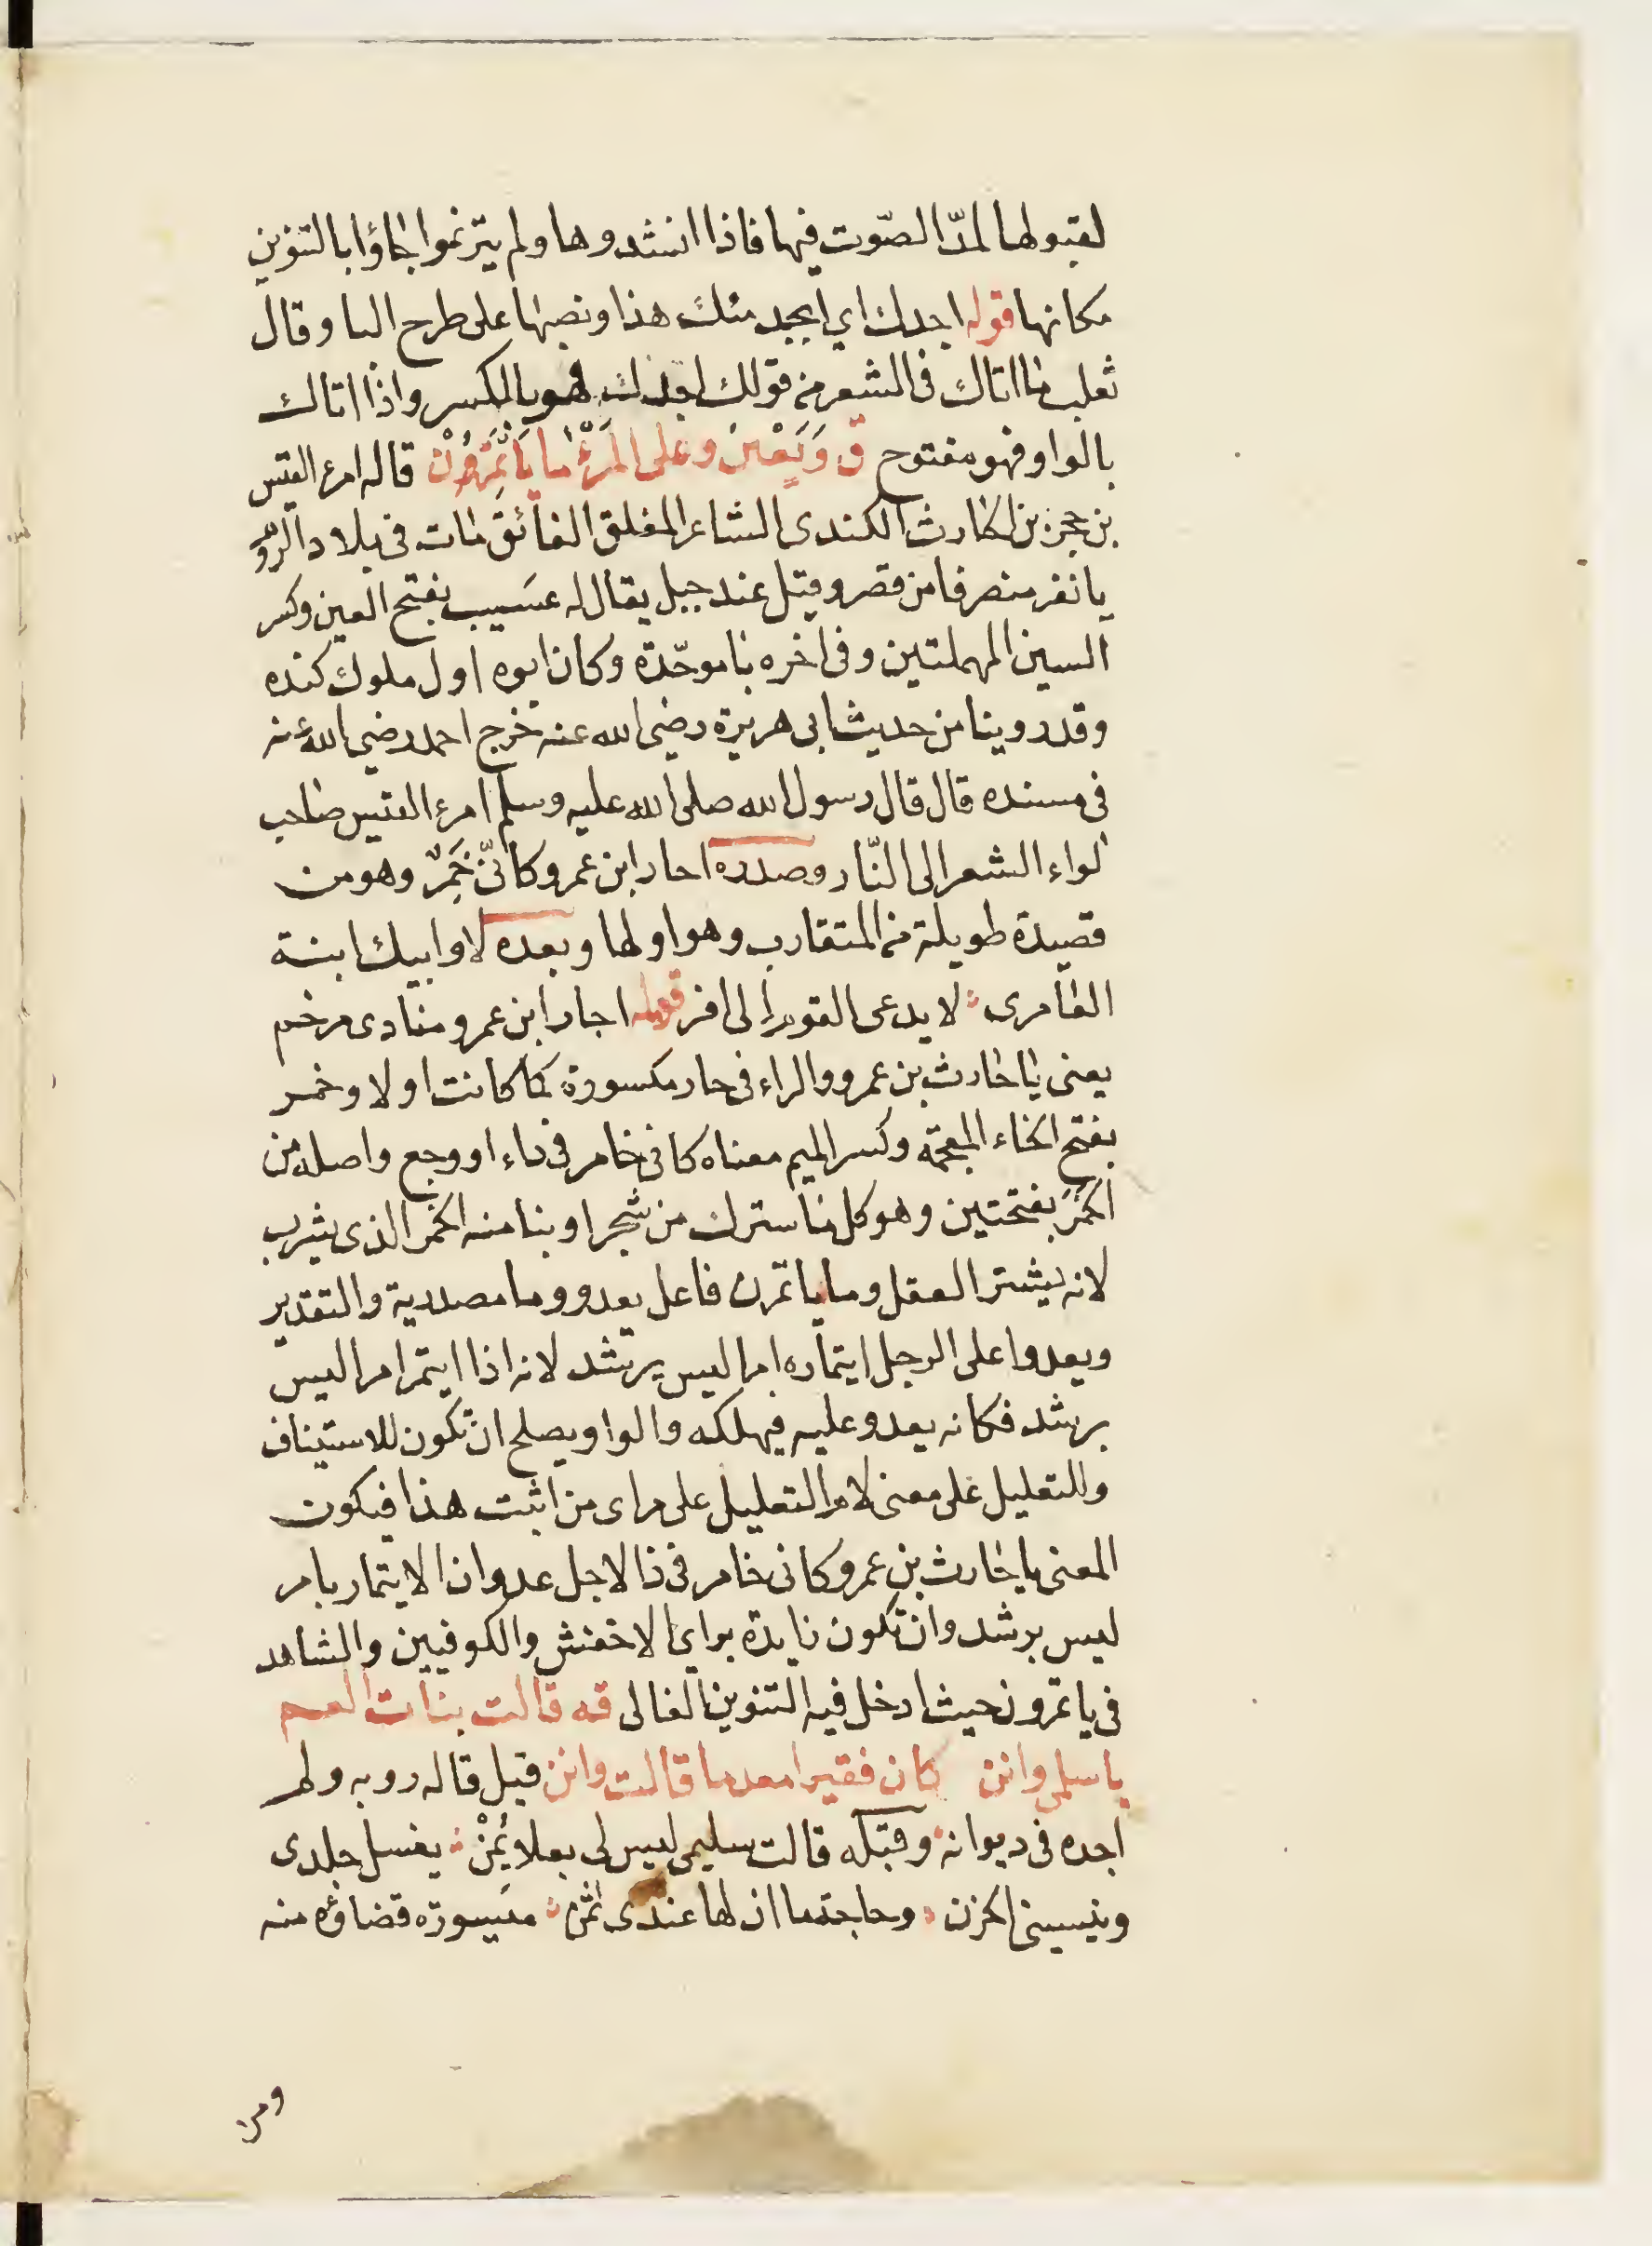 لقبولها لمدّ الصّوت فيها فاذا انشدوها ولم يترنموا جاؤا بالتنوين
مكانها قوله اجدك اي ابجد منك هذا ونصبها على طرح البا وقال
ثعلب ما اتاك في الشعر من قولك اجدك فهو بالكسر واذا اتاك
بالواو فهو مفتوح ق وَيَعْدُو على المَرْءِ ما يَأتَمِرُونْ قاله امرء القيس
بن حجر بن الحارث الكندي الشاعر المفلق الفائق مات في بلاد الروم
بانقر منصرفا من قصر وقيل عند جبل يقال له عسيب بفتح العين وكسر
السين المهملتين وفي اخره با موحّدة وكان ابوه اول ملوك كنده
وقد روينا من حديث ابي هريرة رضي الله عنه خرج احمد رضي الله عنه
في مسنده قال قال رسول الله صلى الله عليه وسلم امرء القيس صاحب
لواء الشعر الى النّار وصدره احار ابن عمرو كانّي خَمِرْ وهو من
قصيدة طويلة من المتقارب وهو اولها وبعده لا وابيك ابنة
العامرى لا يدعى القوم اني افر قوله احار ابن عمرو منادى مرخم
يعنى يا حارث بن عمرو والراء في حار مكسورة كما كانت اولا وخمر
بفتح الخاء المعجمة وكسر الميم معناه كاني خامر في داء او وجع واصله من
الخمر بفتحتين وهو كل ما سترك من شجر او بنا منه الخمر الذى يشرب
لانه يستر العقل وما ياتمرن فاعل يعدو وما مصدرية والتقدير
ويعدوا على الرجل ايتماره امرا ليس برشد لانه اذا ايتمر امرا ليس
برشد فكانه يعدو عليه فيهلكه والواو يصلح ان تكون للاستيناف
وللتعليل على معنى لام التعليل على راى من اثبت هذا فيكون
المعنى يا حارث بن عمرو كانى خامر في ذا لاجل عدوان الايتمار بامر
ليس برشد وان تكون زايدة براي الاخفش والكوفيين والشاهد
في ياتمرون حيث ادخل فيه التنوين الغالى قه قالت بنات العم
يا سلمى وانن كان فقيرا معدما قالت وانن قيل قاله روبه ولم
اجده في ديوانه وقبله قالت سليمى ليس لى بعلا يُمَنْ يغسل جلدى
وينسينى الحزن وحاجة ما ان لها عندى ثمن ميسورة قضاؤه منه
ومن